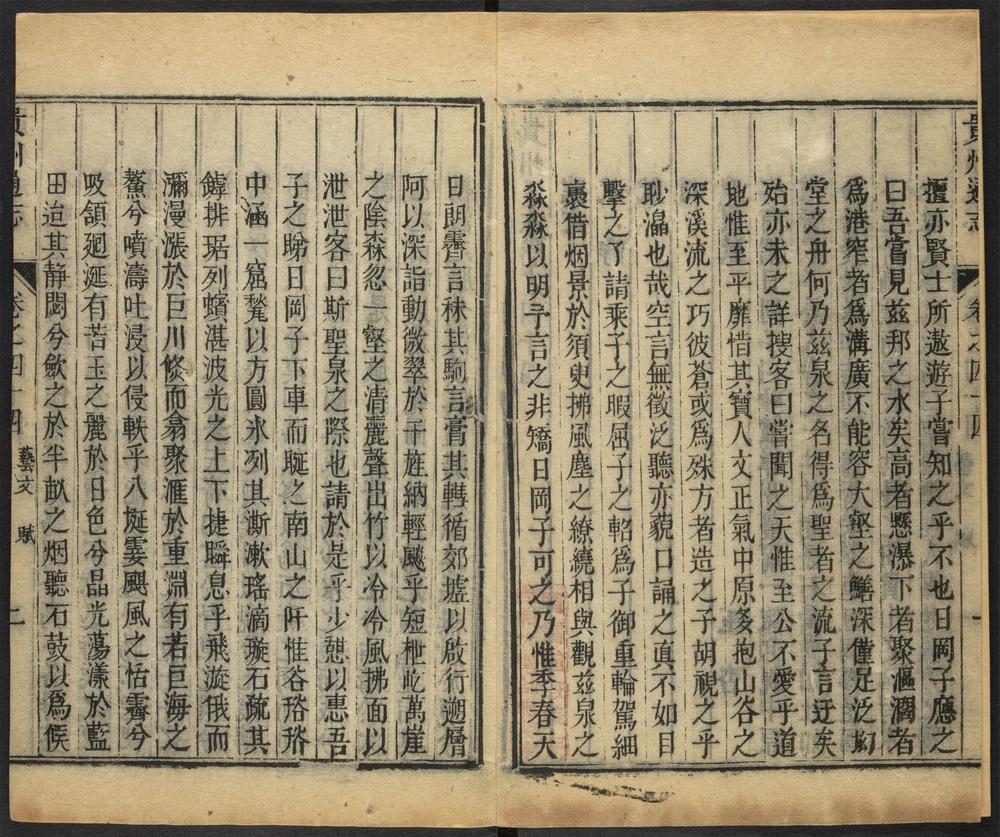 貴州通志 卷之四十四
擅亦賢士所遨遊子嘗知之乎不也日岡子應之
曰吾嘗見兹邦之水矣高者懸瀑下者聚漚濶者
爲港窄者爲溝廣不能容大壑之鱔深僅足泛坳
堂之舟何乃兹泉之名得爲聖者之流子言迂矣
殆亦未之詳搜客曰嘗聞之天惟至公不愛乎道
地惟至平靡惜其寶人文正氣中原多抱山谷之
深溪流之巧彼蒼或爲殊方者造之子胡視之乎
眇溋也哉空言無徵泛聽亦藐口誦之真不如目
擊之了請乘子之暇屈子之軺爲子御重輪駕細
裹借烟景於須臾拂風塵之繚繞相與觀兹泉之
淼淼以明予言之非矯日岡子可之乃惟季春天
日朗霽言秣其駒言膏其轊循郊墟以啟行遡層
阿以深詣動微翠於干旌納輕飇乎短枻屹萬崖
之陰森忽一壑之清麗聲出竹以冷冷風拂面以
泄泄客曰斯聖泉之際也請於是乎少憩以惠吾
子之睇日岡子下車而踸之南山之阡惟谷嵱嵱
中涵一窟甃以方圓氷冽其澌漱瑤滴璇石疏其
鏬排琚列蠙湛波光之上下捷瞬息乎飛漩俄而
瀰漫漲於巨川倐而翕聚滙於重淵有若巨海之
鰲兮噴濤吐浸以侵軼乎八埏霎颶風之恬霽兮
吸頷廻涎有苦玉之麗於日色兮晶光蕩漾於藍
田迨其静閟兮歛之於半畝之烟聽石鼓以爲候
貴州通志 卷之四十四 藝文 賦 二